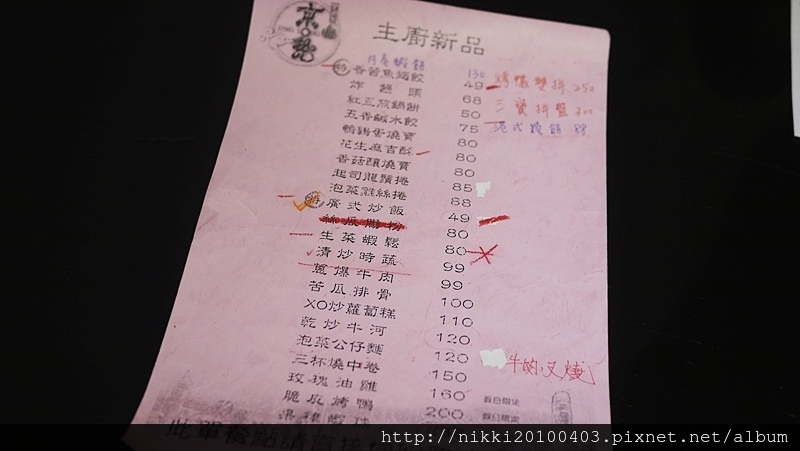 京星
主廚新品
月亮蝦餅 130
香茜魚翅餃 49
炸饅頭 68
紅豆煎鍋餅 50
五香鹹水餃 75
鵪鶉蛋燒賣 80
花生麻吉酥 80
香菇釀燒賣 80
起司龍鬚捲 80
泡菜雞絲捲 85
廣式炒飯 88
絲瓜腸粉 49
生菜蝦鬆 80
清炒時蔬 80
蔥爆牛肉 99
苦瓜排骨 99
XO炒蘿蔔糕 100
乾炒牛河 110
泡菜公仔麵 120
三杯燒中卷 120
玫瑰油雞 150
脆皮烤鴨 160 假日限定
200 假日限定
烤鴨雙拼 250
三寶拼盤 300
港式蝦餅 88
牛肉、叉燒
此單
http://nikki20100403.pixnet.net/album